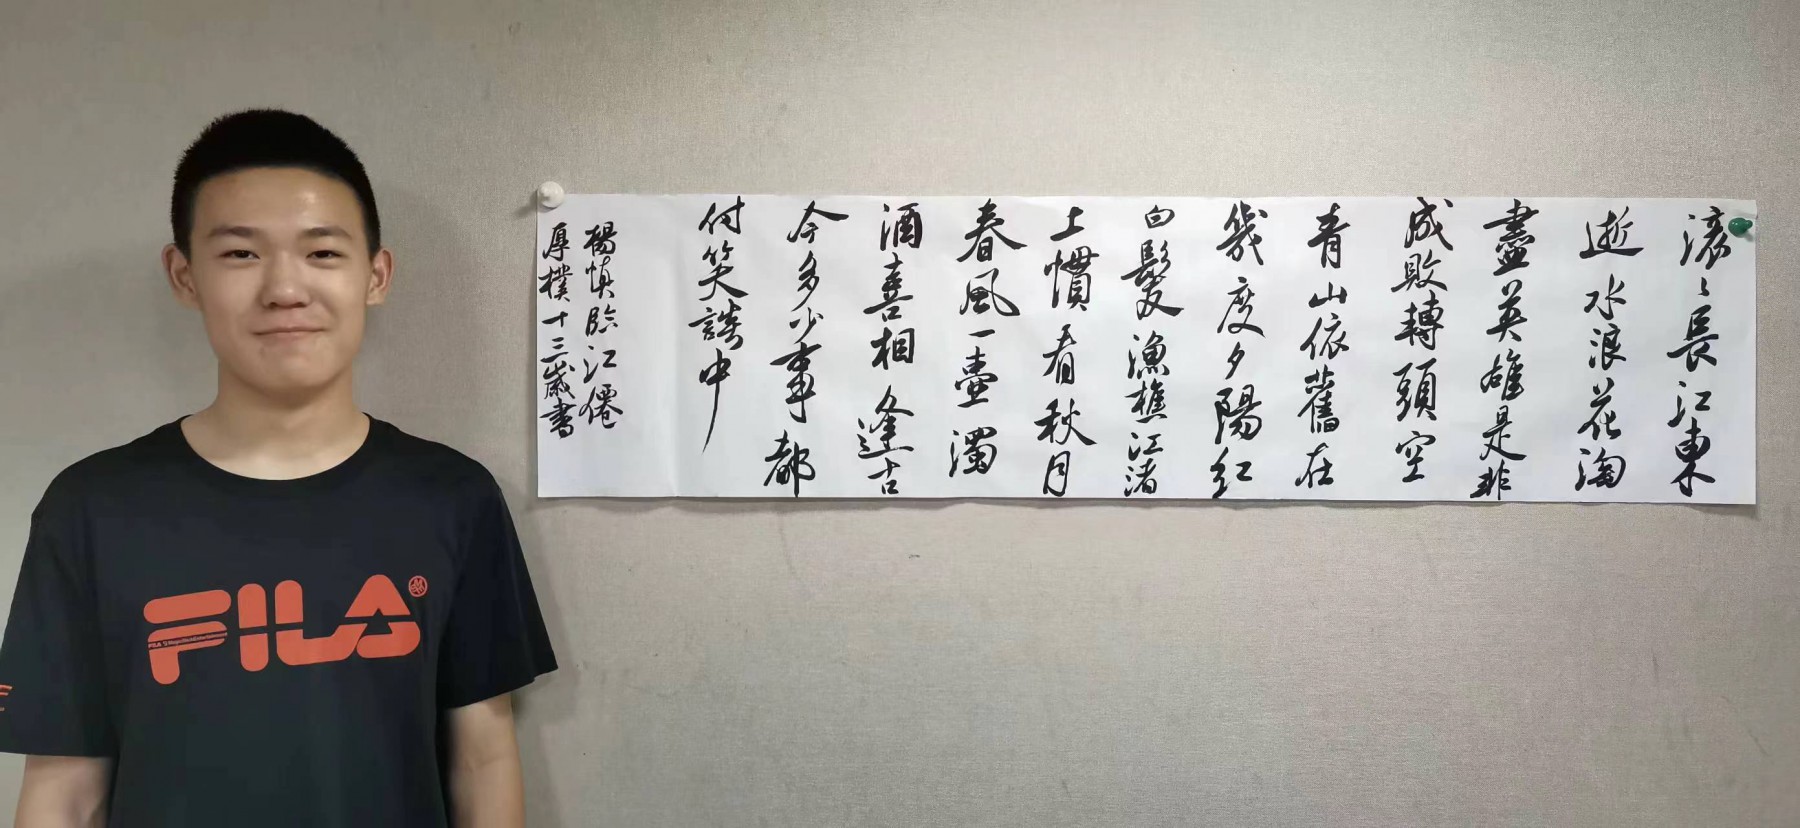 滚々長江東
逝水浪花淘
盡英雄是非
成敗轉頭空
青山依舊在
幾度夕陽紅
白髮漁樵江渚
上慣看秋月
春風一壺濁
酒喜相逢古
今多少事都
付笑談中
楊慎臨江僊
厚樸十三歲書
FILA